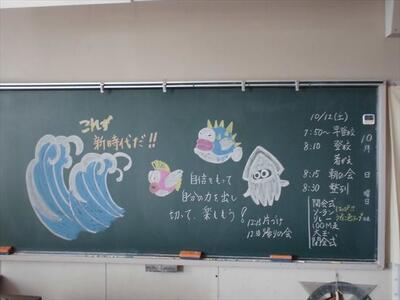 これが
新時代だ!!
自信をもって
自分の力を出し
切って、楽しもう!
12:15 片づけ
12:30 帰りの会
10/12(土)
7:50〜
8:10 登校
着がえ
8:15 朝の会
8:30 整列
開会式
ソーラン
リレー
100M走
大玉
閉会式
10
月
日
曜
日